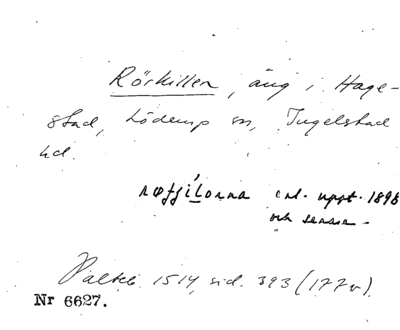 Rörkillen, äng i Hage-
stad, Löderup sn, Ingelstad
hd.
enl. uppt. 1896
och senare.
1514, sid. 393 (177v).
Nr 6627.